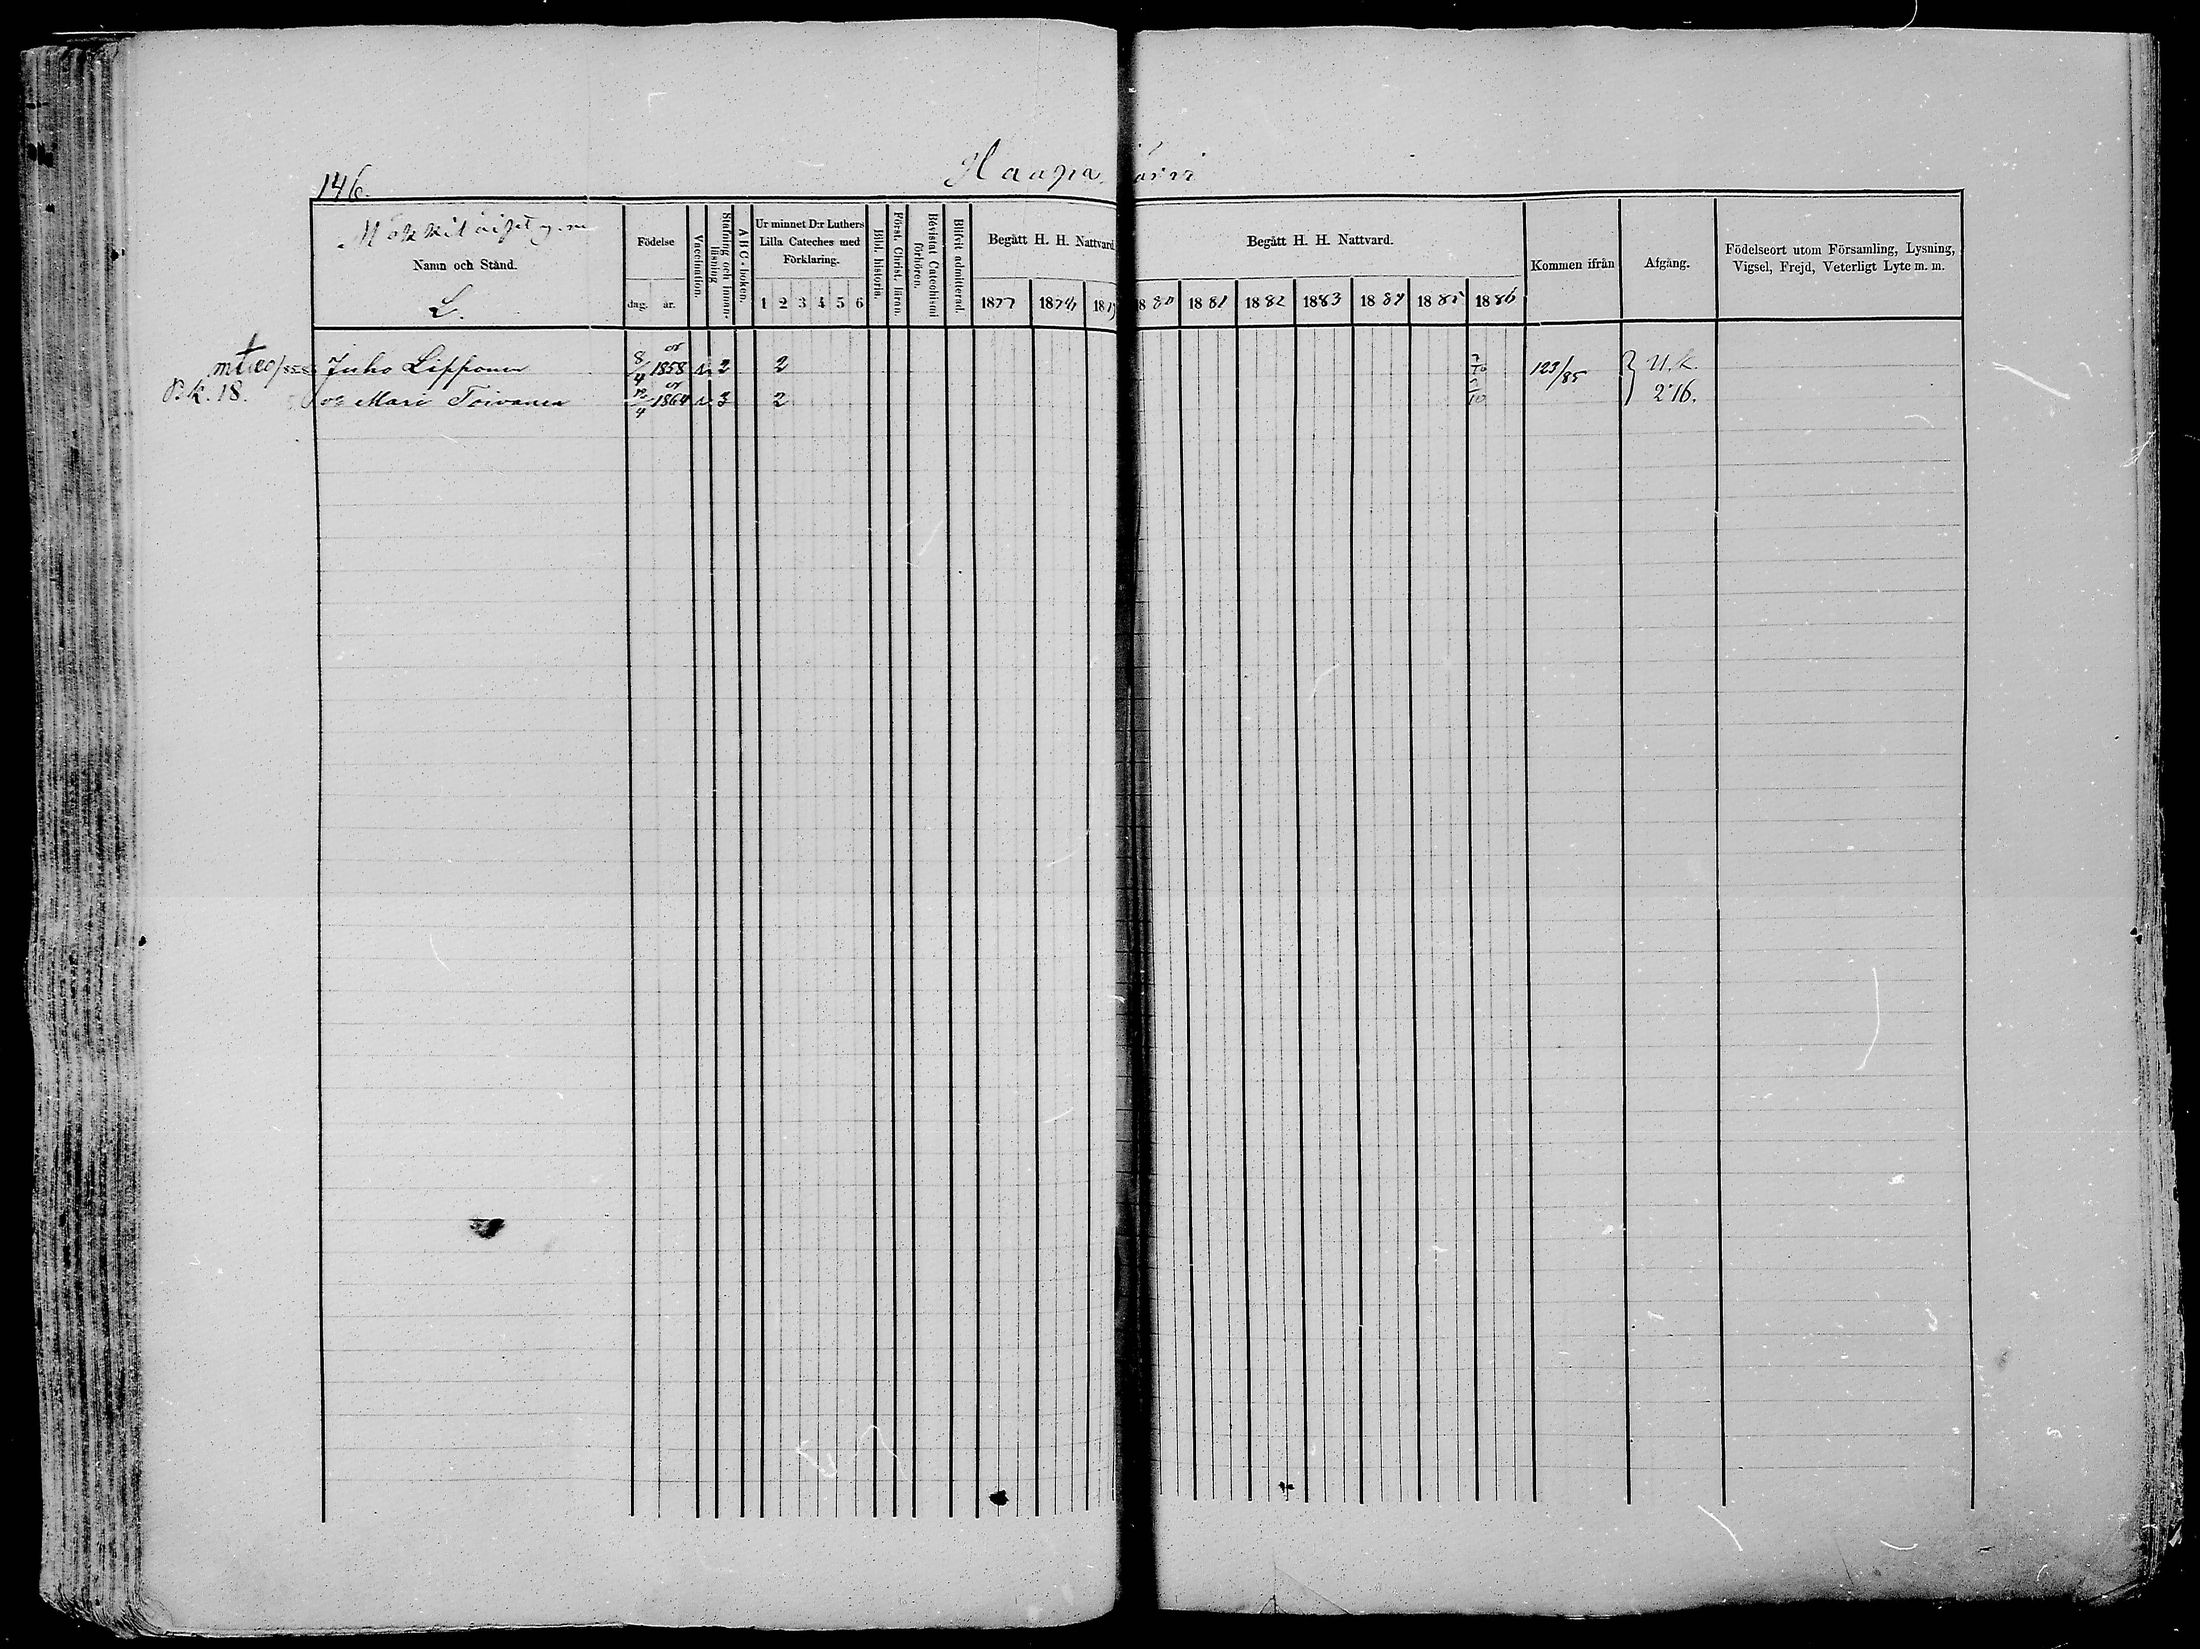 146.
Haapa järvi
Namn och Stånd.
L.
Födelse
dag. år.
Vaccination.
Stafning och innanläsning
A B C - boken.
Ur minnet D:r Luthers
Lilla Cateches med
Förklaring.
1 2 3 4 5 6
Bibl. historia.
Först. Christ. läran.
Bevistat Catechismi
förhören.
Blifvit admitterad.
Begått H. H. Nattvard
1877 1878 1879
Begått H. H. Nattvard.
1880 1881 1882 1883 1884 1885 1886
Kommen ifrån
Afgång.
Födelseort utom Församling, Lysning,
Vigsel, Frejd, Veterligt Lyte m. m.
Juho Lipponen 8/4 1858 2 2 7/10 123/85 U. k.
P. k. 18.
Mari Toivanen 1864 3 2 7/10 216.